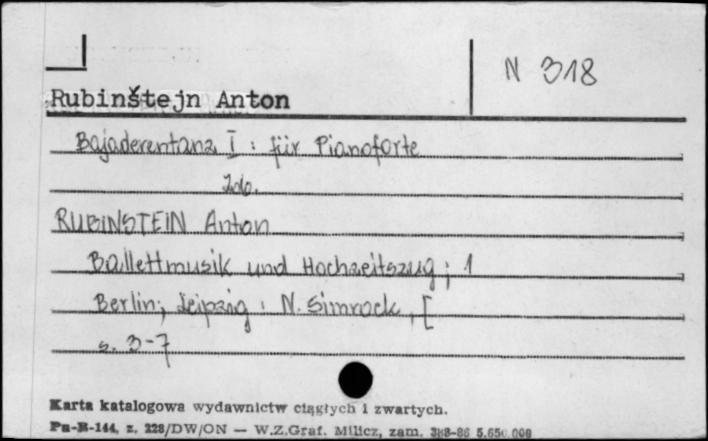 N 318
Rubinštejn Anton
Bajaderentanz I : für Pianoforte
Zob.
RUBINSTEIN Anton
Ballettmusik und Hochzeitszug ; 1
Berlin ; Leipzig : N. Simrock, [
s. 3-7
Karta katalogowa wydawnictw ciągłych i zwartych.
Pu-B-144, z. 228/DW/ON — W.Z.Graf. Milicz, zam. 388-86 5.650.000